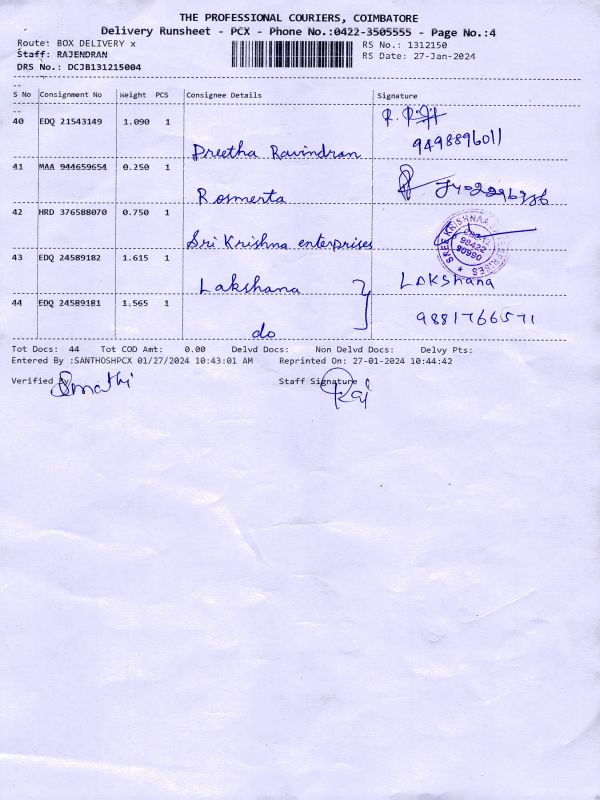 THE PROFESSIONAL COURIERS, COIMBATORE
Delivery Runsheet - PCX - Phone No.:0422-3505555 - Page No.:4
Route: BOX DELIVERY x RS No.: 1312150
Staff: RAJENDRAN RS Date: 27-Jan-2024
DRS No.: DCJB131215004
S No Consignment No Weight PCS Consignee Details Signature
40 EDQ 21543149 1.090 1
Preetha Ravindran 9498896011
41 MAA 944659654 0.250 1
Rosmerta
42 HRD 376588070 0.750 1
Sri Krishna enterprises
43 EDQ 24589182 1.615 1
Lakshana LAKshana
44 EDQ 24589181 1.565 1
do 9881766571
Tot Docs: 44 Tot COD Amt: 0.00 Delvd Docs: Non Delvd Docs: Delvy Pts:
Entered By :SANTHOSHPCX 01/27/2024 10:43:01 AM Reprinted On: 27-01-2024 10:44:42
Verified By Staff Signature